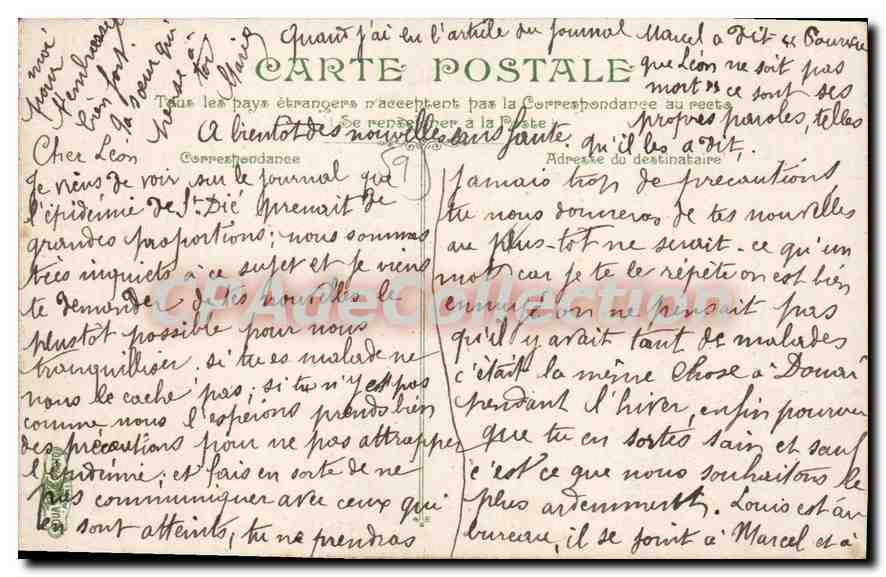 Quand j'ai lu l'article du journal Marcel a dit "Pourvu
que Léon ne soit pas
mort" ce sont ses
propres paroles, telles
qu'il les a dit.
CARTE POSTALE
Tous les pays étrangers n'acceptent pas la Correspondance au recto
(Se renseigner à la Poste)
A bientot des nouvelles sans faute.
Correspondance
Adresse du destinataire
9
Cher Léon
Je viens de voir sur le journal que
l'épidémie de St Dié prenait de
grandes proportions; nous sommes
très inquiets à ce sujet et je viens
te demander de tes nouvelles le
plustot possible pour nous
tranquilliser. si tu es malade ne
nous le cache pas; si tu n'y est pas
comme nous l'espérons prends bien
des précautions pour ne pas attrapper
l'épidémie; et fais en sorte de ne
pas communiquer avec ceux qui
en sont atteints, tu ne prendras
jamais trop de precautions,
tu nous donneras de tes nouvelles
au plus-tot ne serait-ce qu'un
mot car je te le répète on est bien
ennuyé on ne pensait pas
qu'il y avait tant de malades
c'était la même chose à Douai
pendant l'hiver, enfin pourvu
que tu en sortes sain et sauf
c'est ce que nous souhaitons le
plus ardemment. Louis est au
bureau, il se joint à Marcel et à
moi
pour
t'embrasser
bien fort.
ta soeur qui
pense à
toi
Marie
CPAdeCollection